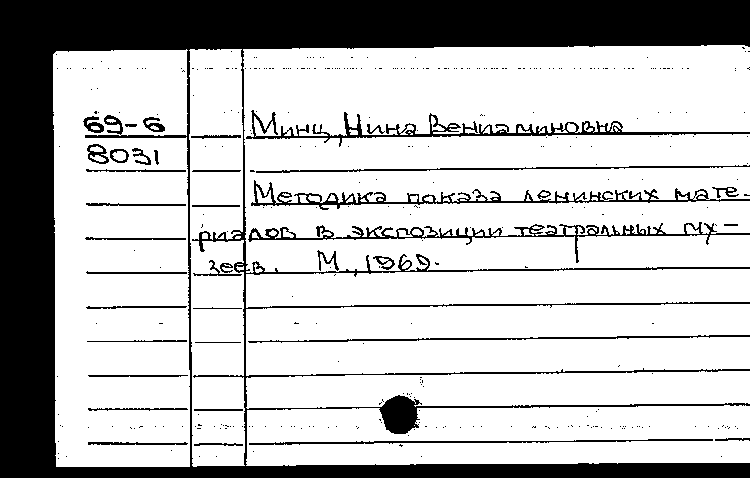 69-6 Минц, Нина Вениаминовна
8031
Методика показа ленинских мате-
риалов в экспозиции театральных му-
зеев. М., 1969.